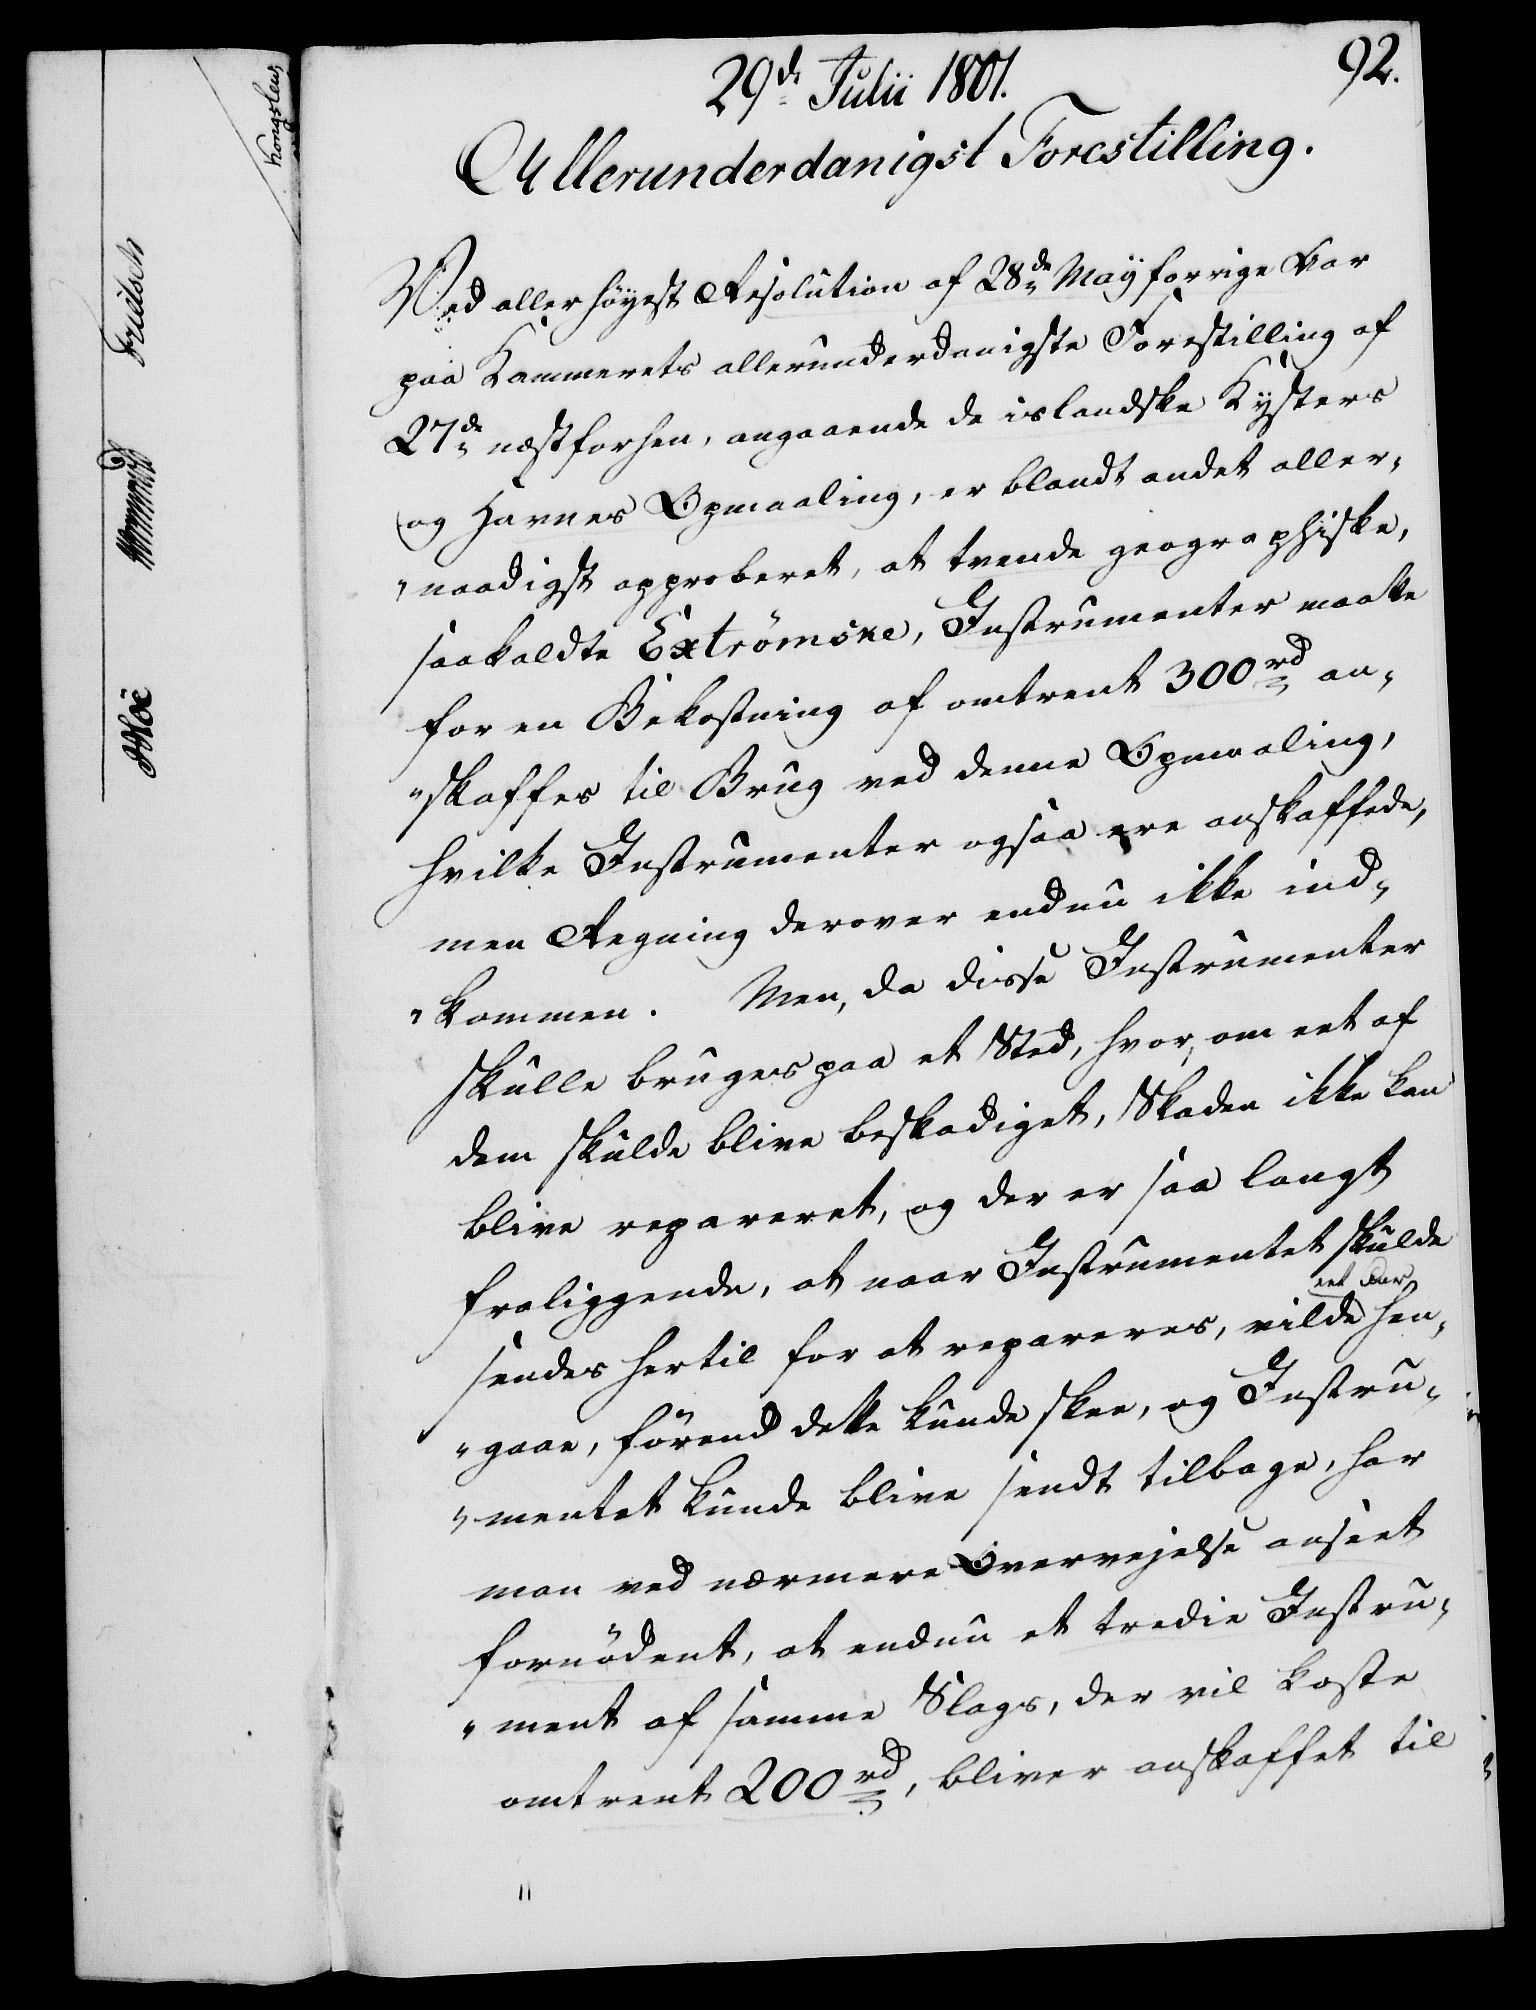 92.
29de Julii 1801.
Allerunderdanigst Forestilling.
Ved allerhöyest Resolution af 28de Maÿ forrige Aar
paa Kammerets allerunderdanigste Forestilling af
27de næstforhen, angaaende de islandske Kÿsters
og Havnes Opmaaling, er blandt andet aller-
"naadigst approberet, at tvende geographiske,
saakaldte Extrömske, Instrumenter maatte
for en Bekostning af omtrent 300 rd an-
"skaffes til Brug ved denne Opmaaling,
hvilke Instrumenter ogsaa ere anskaffede,
men Regning derover endnu ikke ind-
"kommen. Men, da disse Instrumenter
skulle bruges paa et Sted, hvor, om eet af
dem skulde blive beskadiget, Skaden ikke kan
blive repareret, og der er saa langt
fraliggende, at naar Instrumentet skulde
eet Aar
sendes hertil for at repareres, vilde hen-
"gaae, förend dette kunde skee, og Instru-
"mentet kunde blive sendt tilbage, har
man ved nærmere Overvejelse anseet
fornödent, at endnu et tredie Instru-
"ment af samme Slags, der vil koste
omtrent 200 rd, bliver anskaffet til
Kongslew
Fritsch
Wormskiold
Möe